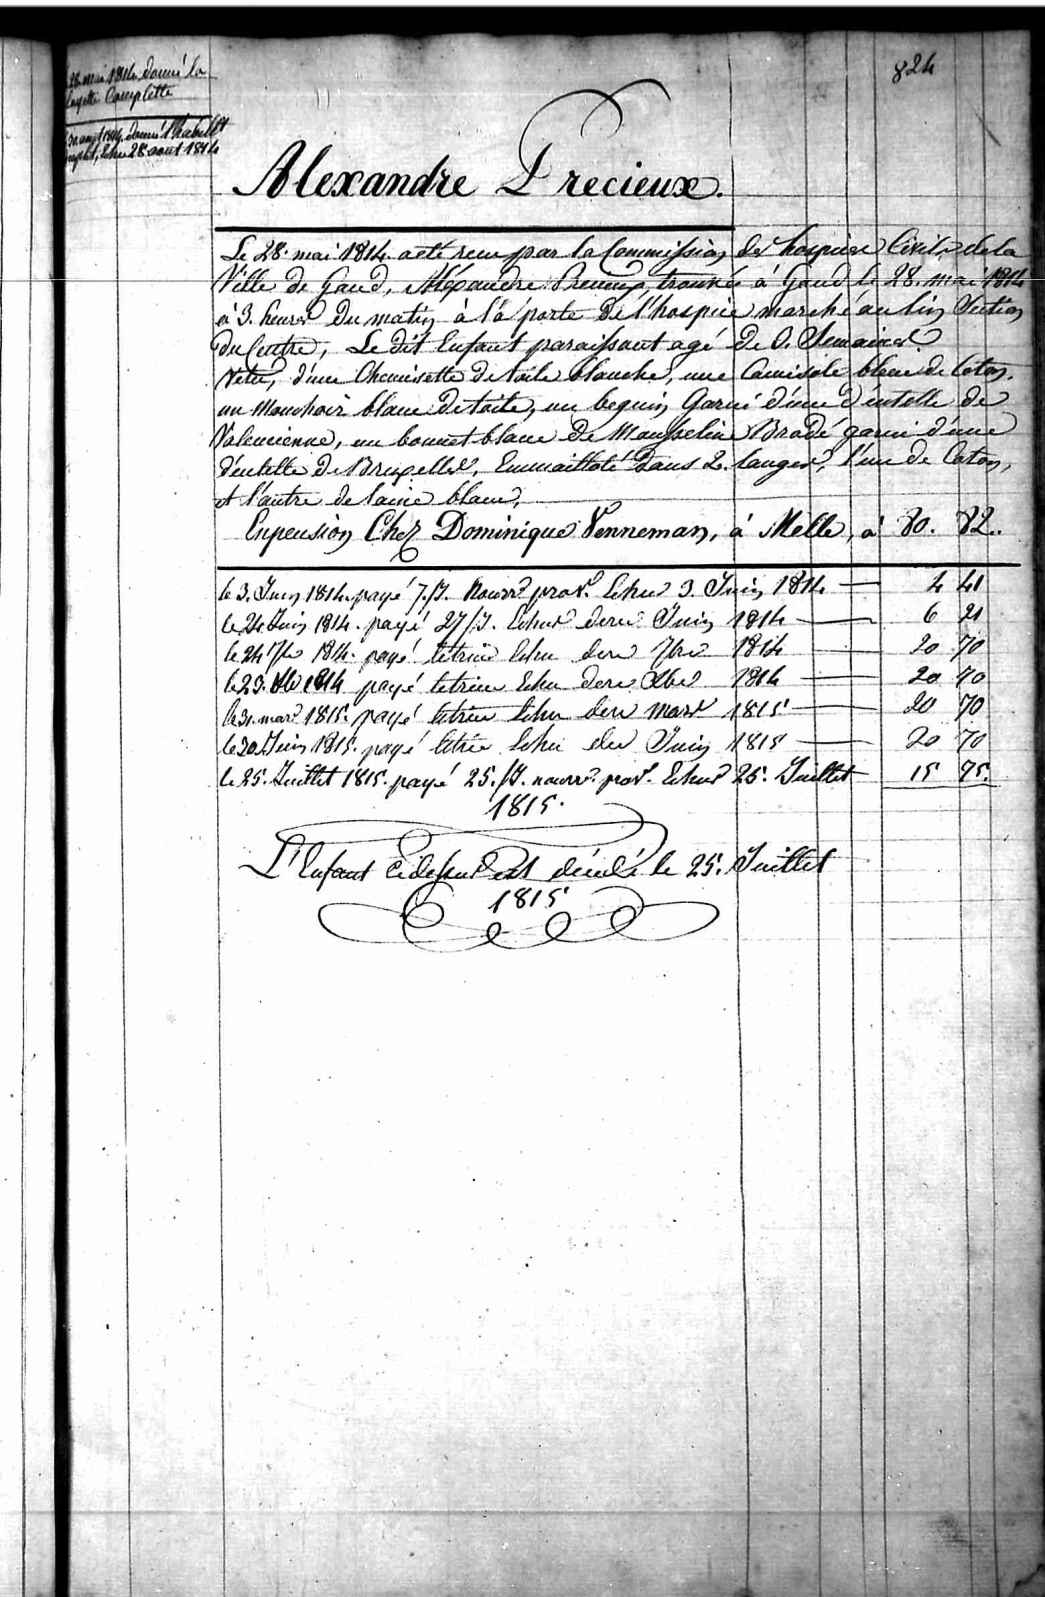 824
28 mai 1814, donné la
layette Complette
aout 1814, donné l'habillt
Echu 28 aout 1814
Alexandre Precieux.
Le 28. mai 1814 a été recu par la Commission des hospices Civils de la
Ville de Gand, Aléxandre Precieux, trouvée à Gand le 28. mai 1814
à 3. heures du matin à la porte de l'hospice marché au lin Section
du Centre, Le dit Enfant paraissant agé de 0. Semaines.
Vetu, d'une Chemisette de toile blanche, une Camisole bleue de Coton,
un Mouchoir blanc de toile, un beguin Garni d'une d'entelle de
Valencienne, un bonnet blanc de Mousseline Brodé garni d'une
d'entelle de Bruxelles, Emmailloté dans 2. langes, l'une de Coton,
et l'autre de laine blanc,
En pension Chez Dominique Venneman, à Melle, à 80. 82.
le 3. Juin 1814. payé 7./J. Nourre prove. Echu 3. Juin 1814 4 41
le 24 Juin 1814. payé 27/J. Echus dere Juin 1814 6 21
le 24 7bre 1814. payé letrim Echu dere 7bre 1814 20 70
le 23. Xbre 1814 payé letrim Echu dere Xbre 1814 20 70
le 31. mars 1815. payé letrim Echu dere mars 1815 20 70
le 20 Juin 1815. payé letrim Echu der Juin 1815 20 70
le 25. Juillet 1815. payé 25./J. nourre. prove. Echus 25. Juillet 15 75.
1815.
L'Enfant ci dessus est décédé le 25. Juillet
1815